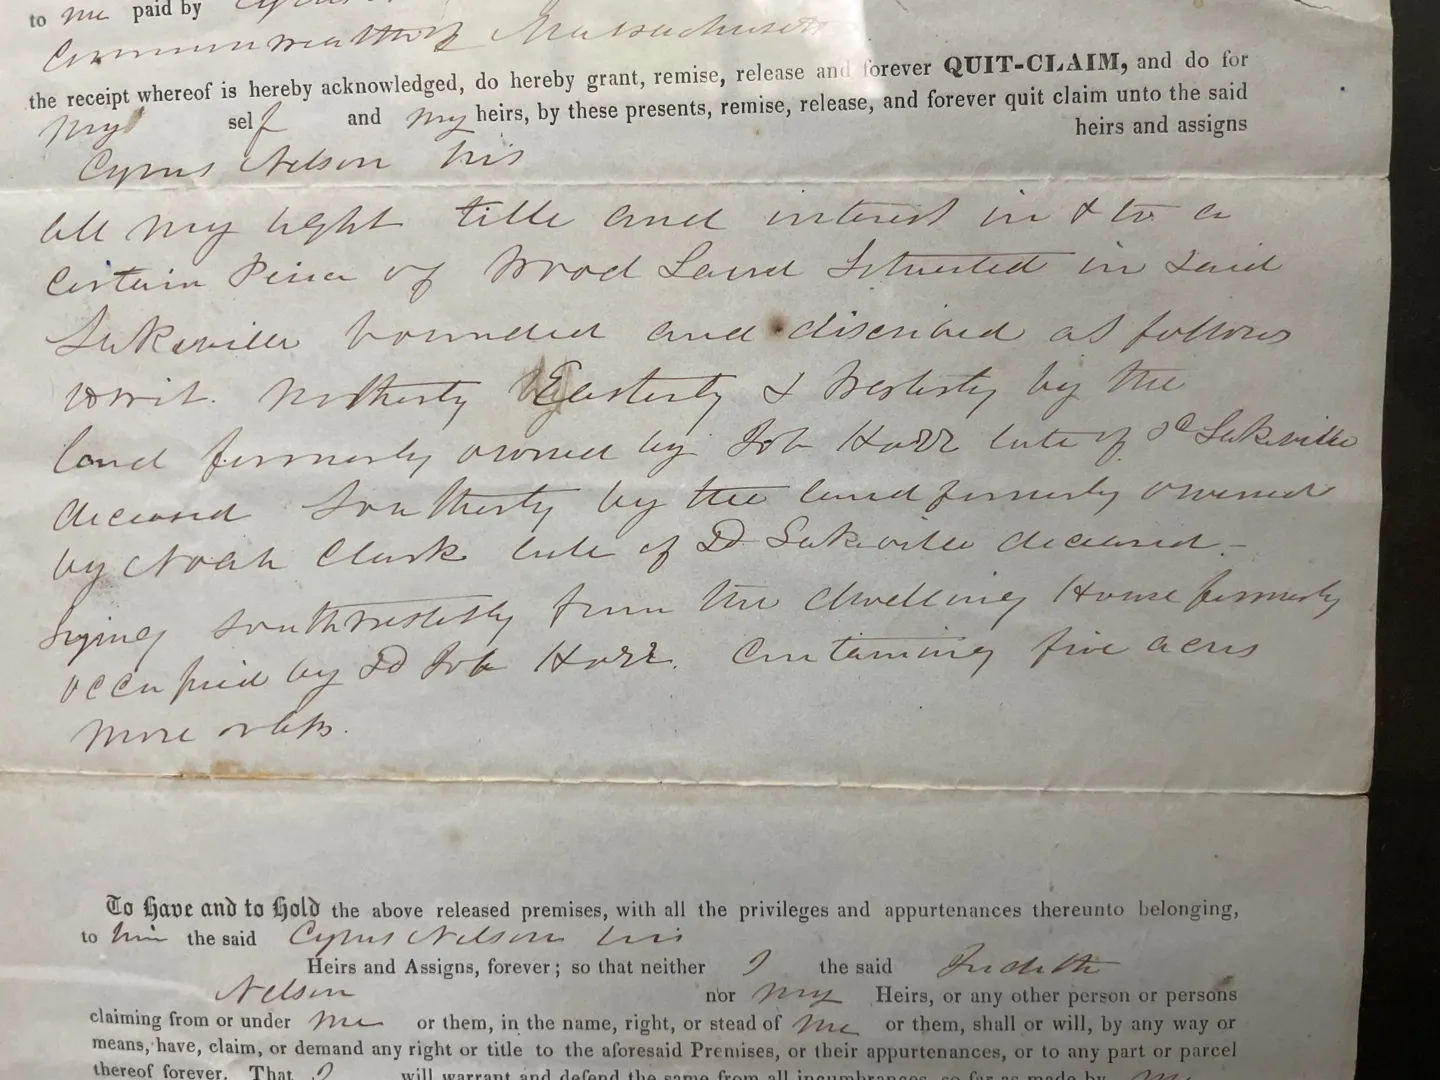 to me paid by Cyrus
Commonwealth of Massachusetts
the receipt whereof is hereby acknowledged, do hereby grant, remise, release and forever QUIT-CLAIM, and do for
my self and my heirs, by these presents, remise, release, and forever quit claim unto the said
Cyrus Nelson his heirs and assigns
all my right title and interest in & to a
certain Piece of Wood Land Situated in Said
Lakeville bounded and discribed as follows
to wit. Notherly Easterly & Westerly by the
land formerly owned by Job Harr late of sd Lakeville
deceased Southerly by the land formerly owned
by Noah Clark late of sd Lakeville deceased. –
Lying southwesterly from the dwelling House formerly
occupied by sd Job Harr. Containing five acres
more or less.
To Have and to Hold the above released premises, with all the privileges and appurtenances thereunto belonging,
to him the said Cyrus Nelson his
Heirs and Assigns, forever; so that neither I the said Judith
Nelson nor my Heirs, or any other person or persons
claiming from or under me or them, in the name, right, or stead of me or them, shall or will, by any way or
means, have, claim, or demand any right or title to the aforesaid Premises, or their appurtenances, or to any part or parcel
thereof forever. That I will warrant and defend the same from all incumbrances, so far as made by me